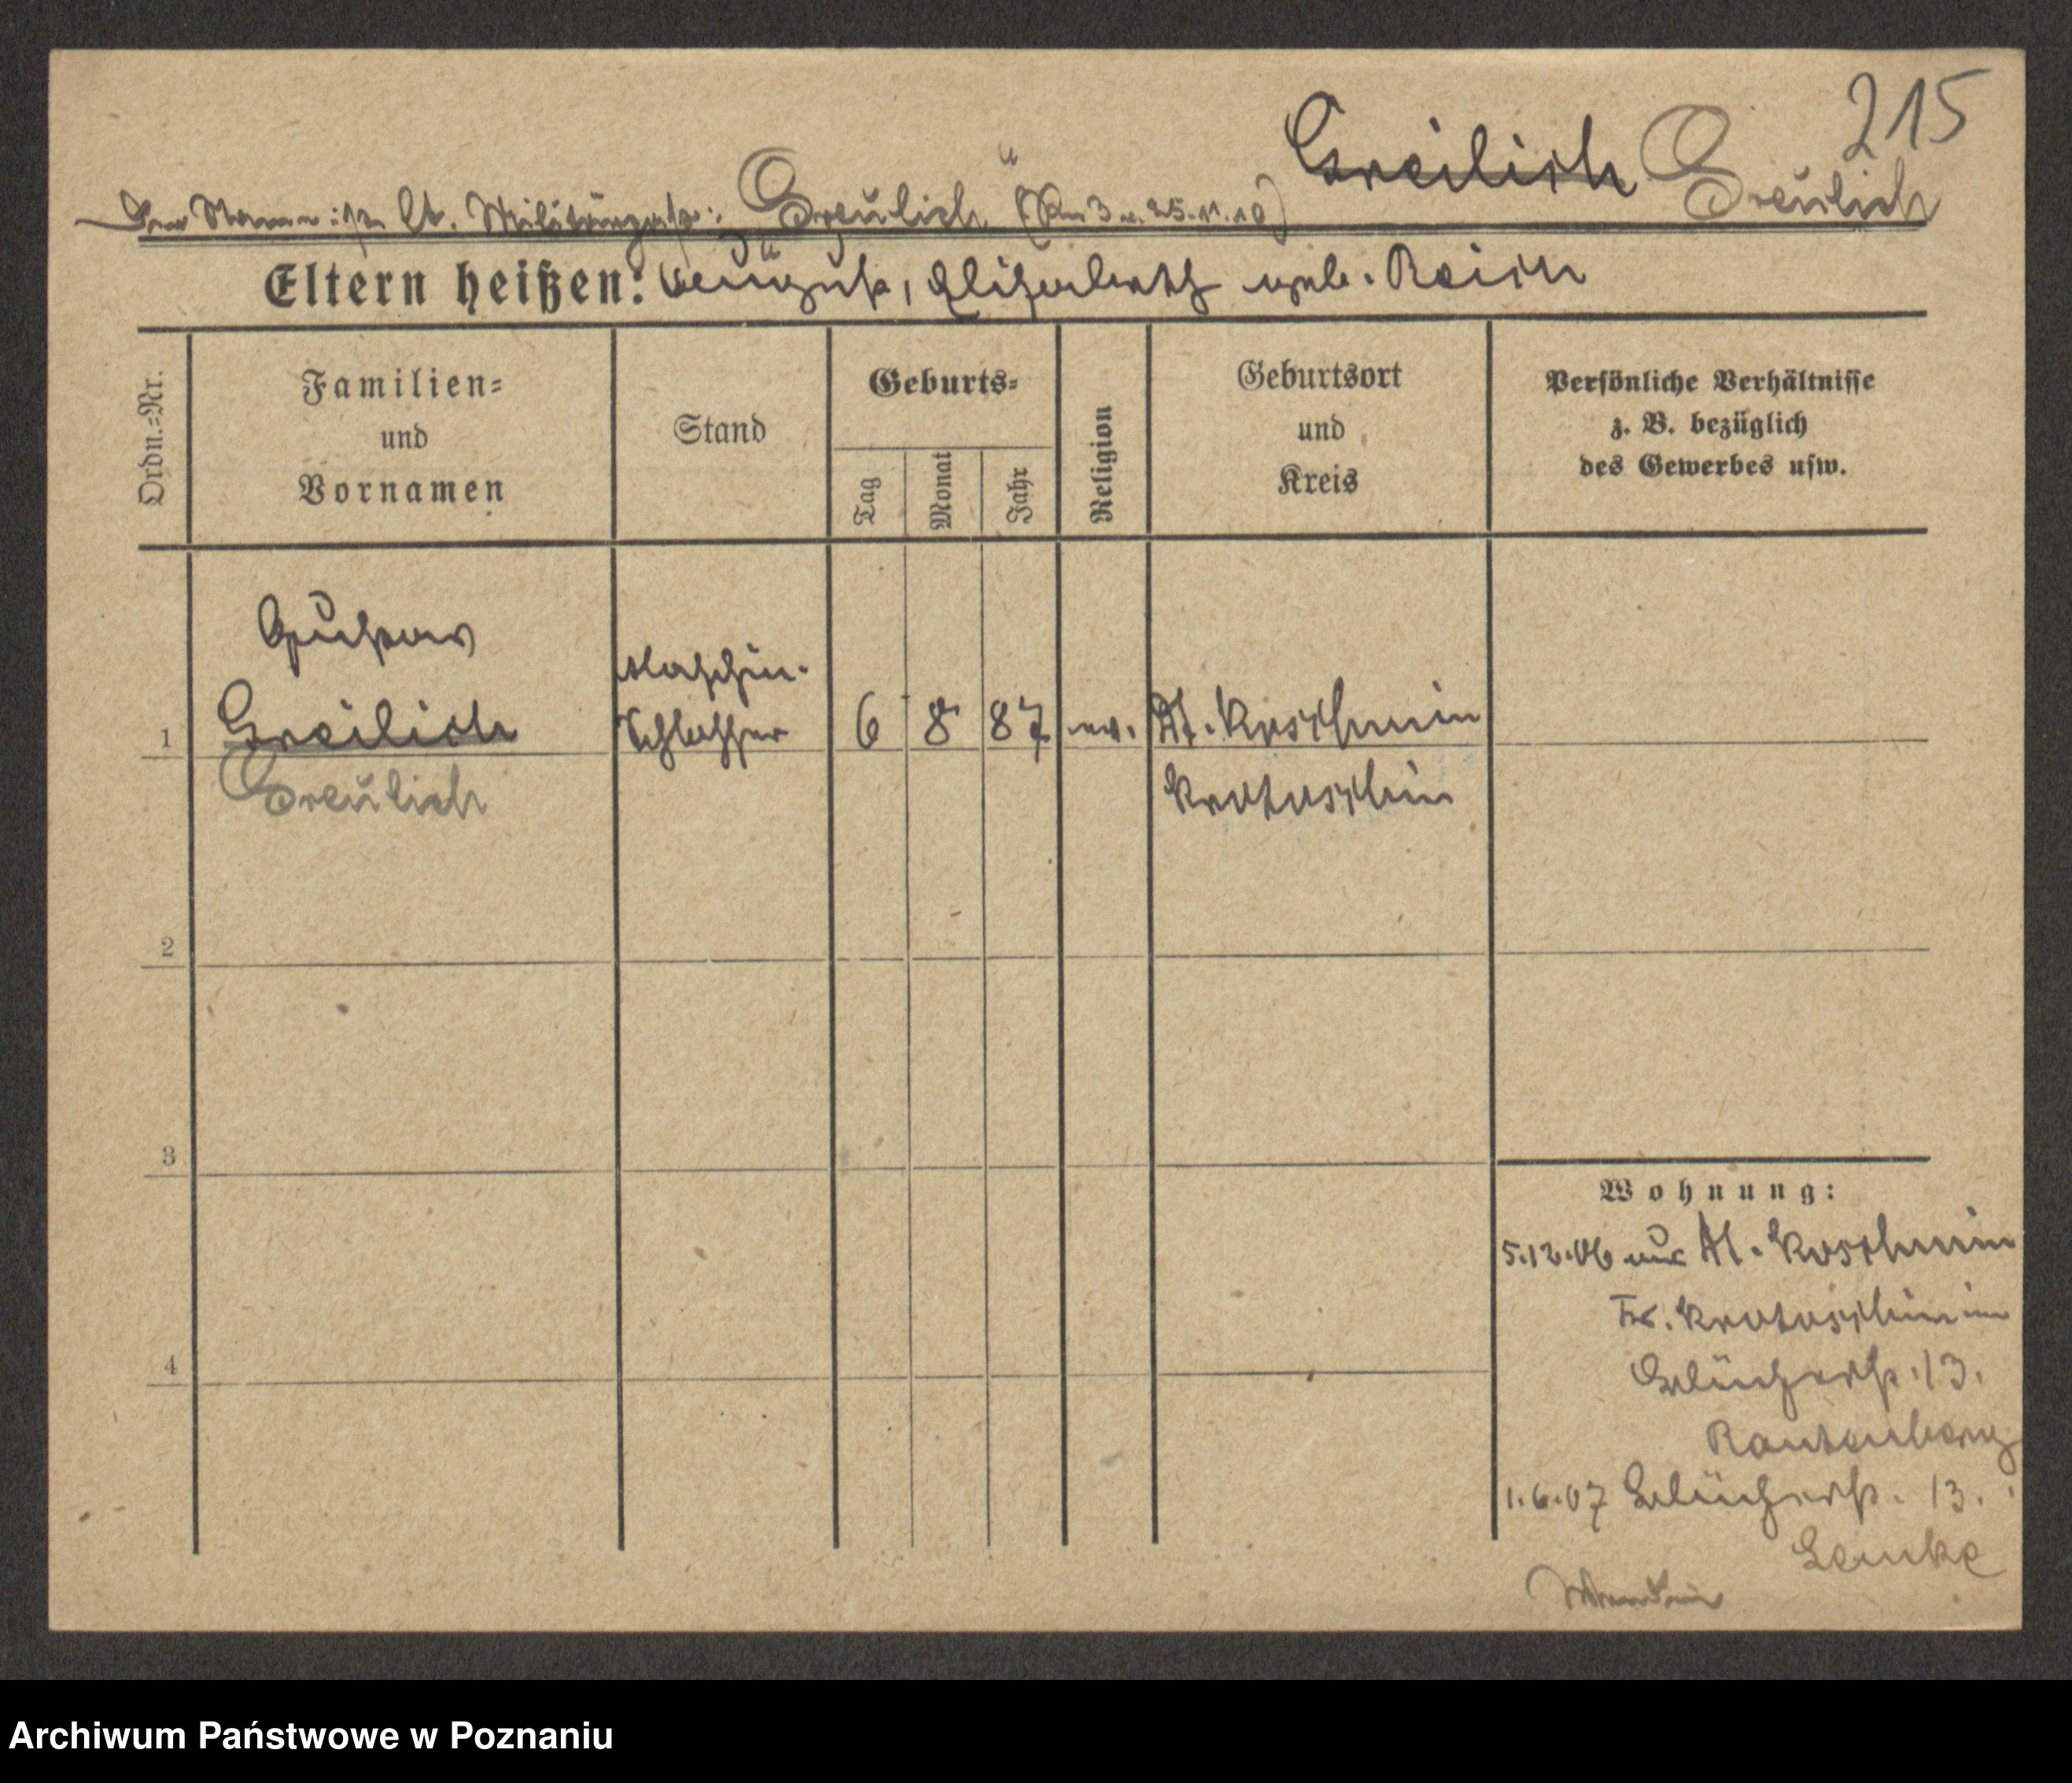 215
Greilich Greulich
Der Name ist lt. Militärpaß: "Greulich" 25.11.10)
Eltern heißen: August, Elisabeth geb. Reich
Ordn.=Nr.
Familien=
und
Vornamen
Stand
Geburts=
Tag
Monat
Jahr
Religion
Geburtsort
und
Kreis
Persönliche Verhältnisse
z. B. bezüglich
des Gewerbes usw.
Gustav
Maschin.
1 Greilich Schlosser 6 8 87 ev. Alt. Koschmin
Greulich Krotoschin
2
3
4
Wohnung:
5.12.06 aus Alt. Koschmin
Kr. Krotoschin
Blücherstr. 13.
Rautenberg
1.6.07 Blücherstr. 13.
Lemke
Archiwum Państwowe w Poznaniu